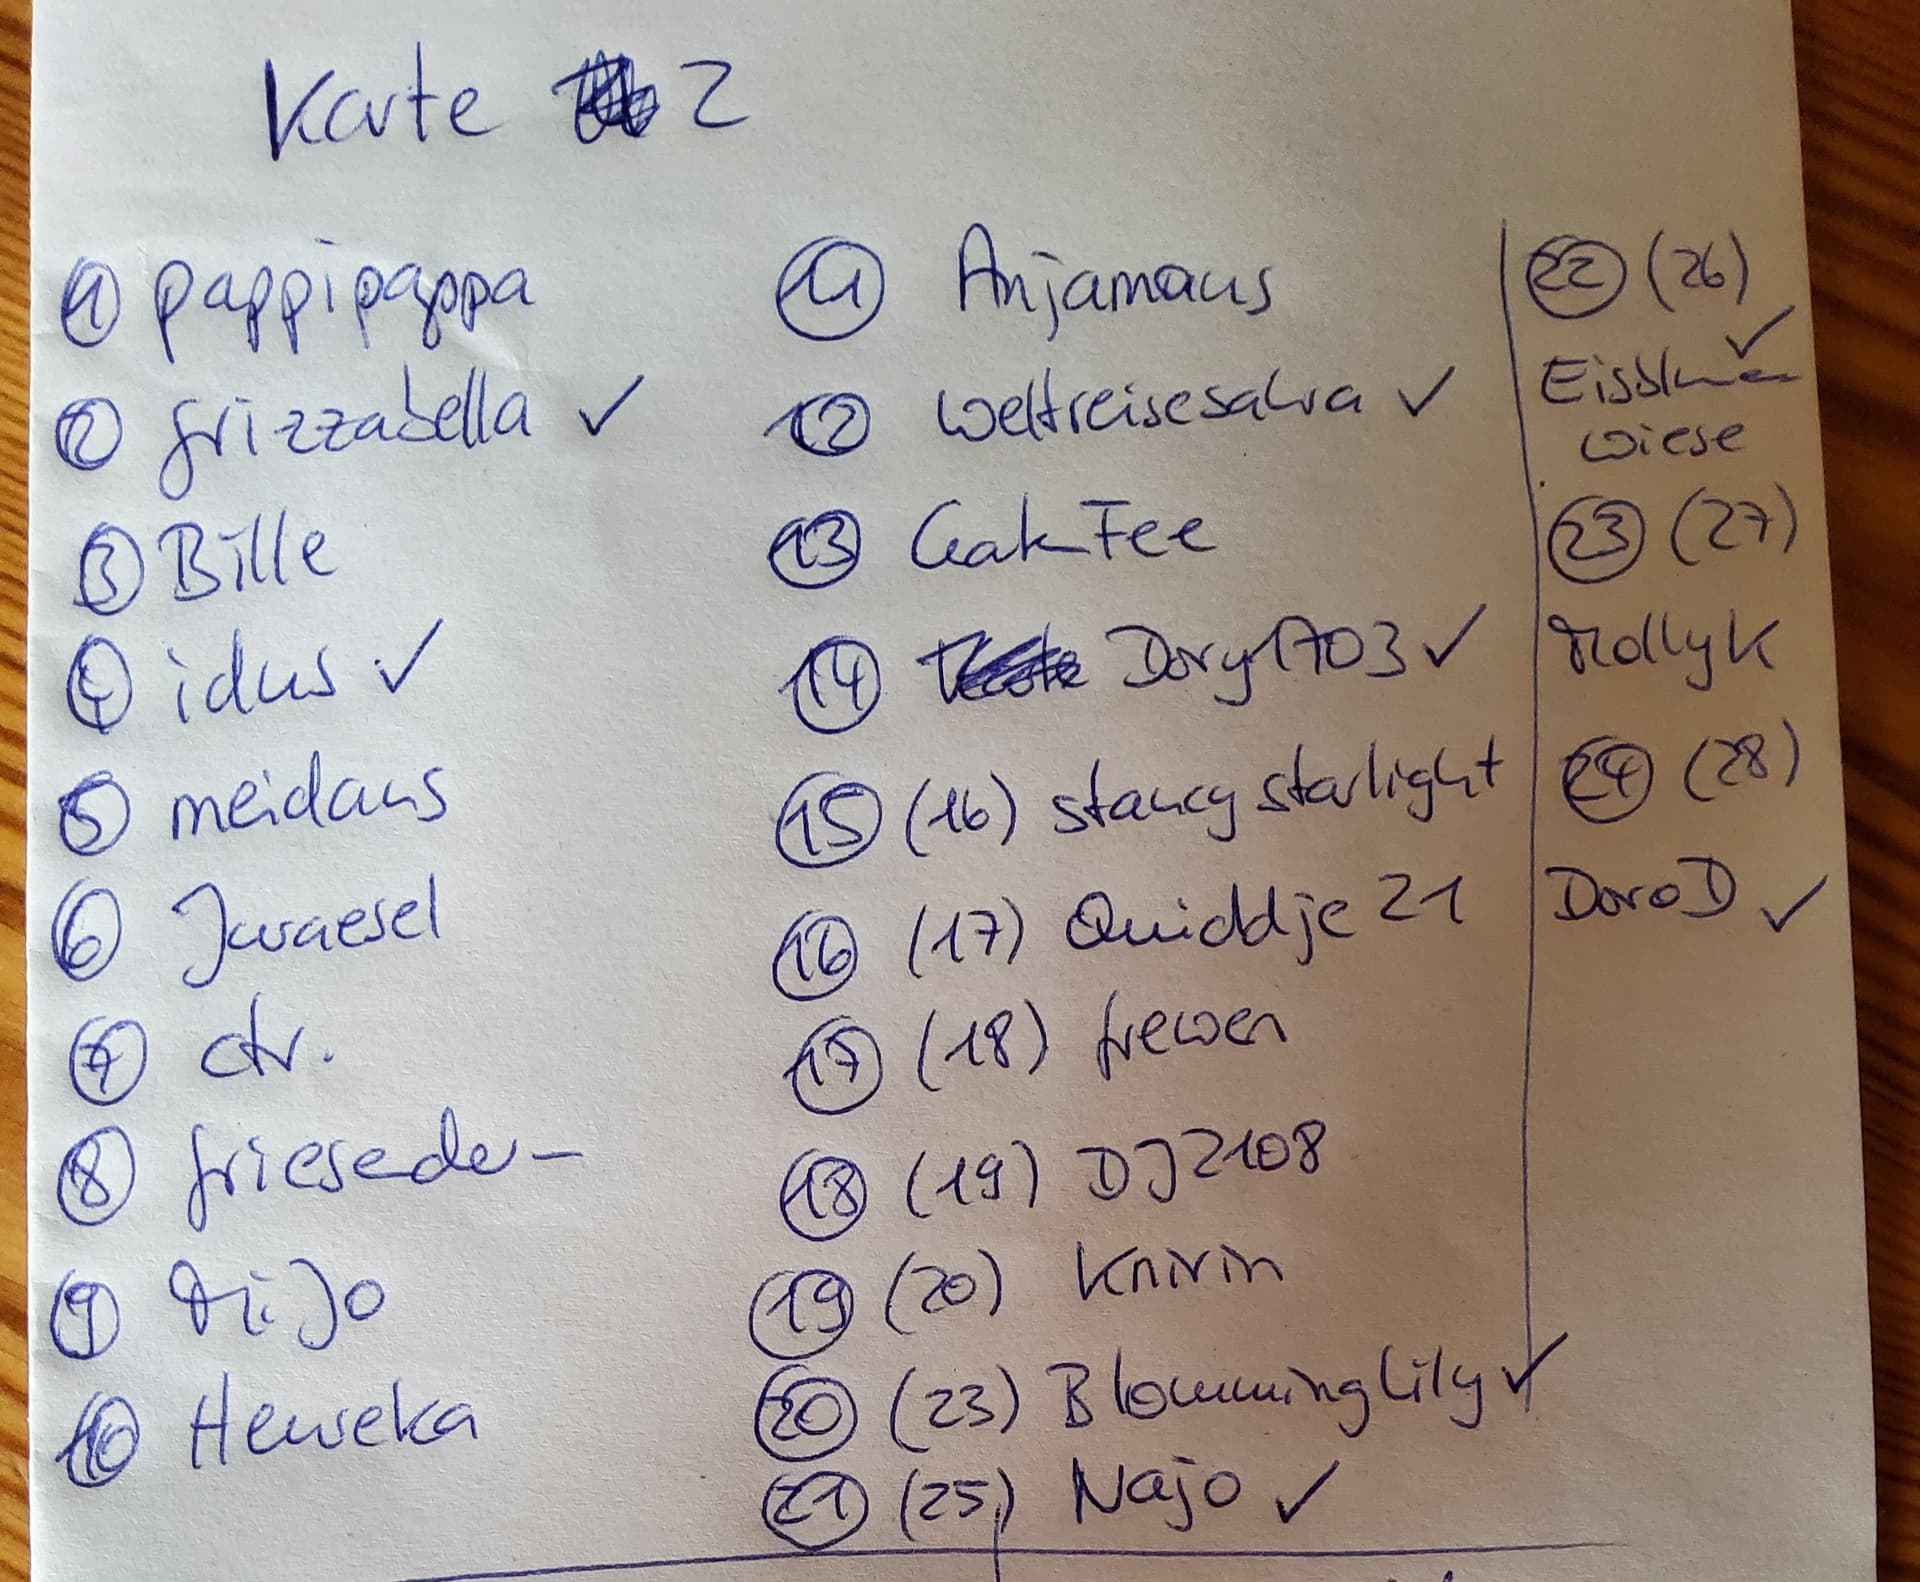 Karte 2
1 pappipappa
2 grizzabella ✓
3 Bille
4 idus ✓
5 meidaus
6 Juraesel
7 ctr.
8 frieseder-
9 MiJo
10 Heureka
11 Anjamaus
12 weltreisesahra ✓
13 GakFee
14 Dory1703 ✓
15 (16) stancystarlight
16 (17) Quiddje 21
17 (18) frewen
18 (19) DJ2108
19 (20) Knirin
20 (23) Blomminglily ✓
21 (25) Najo ✓
22 (26)
✓
Eisblumen
wiese
23 (27)
MollyK
24 (28)
DoroD ✓